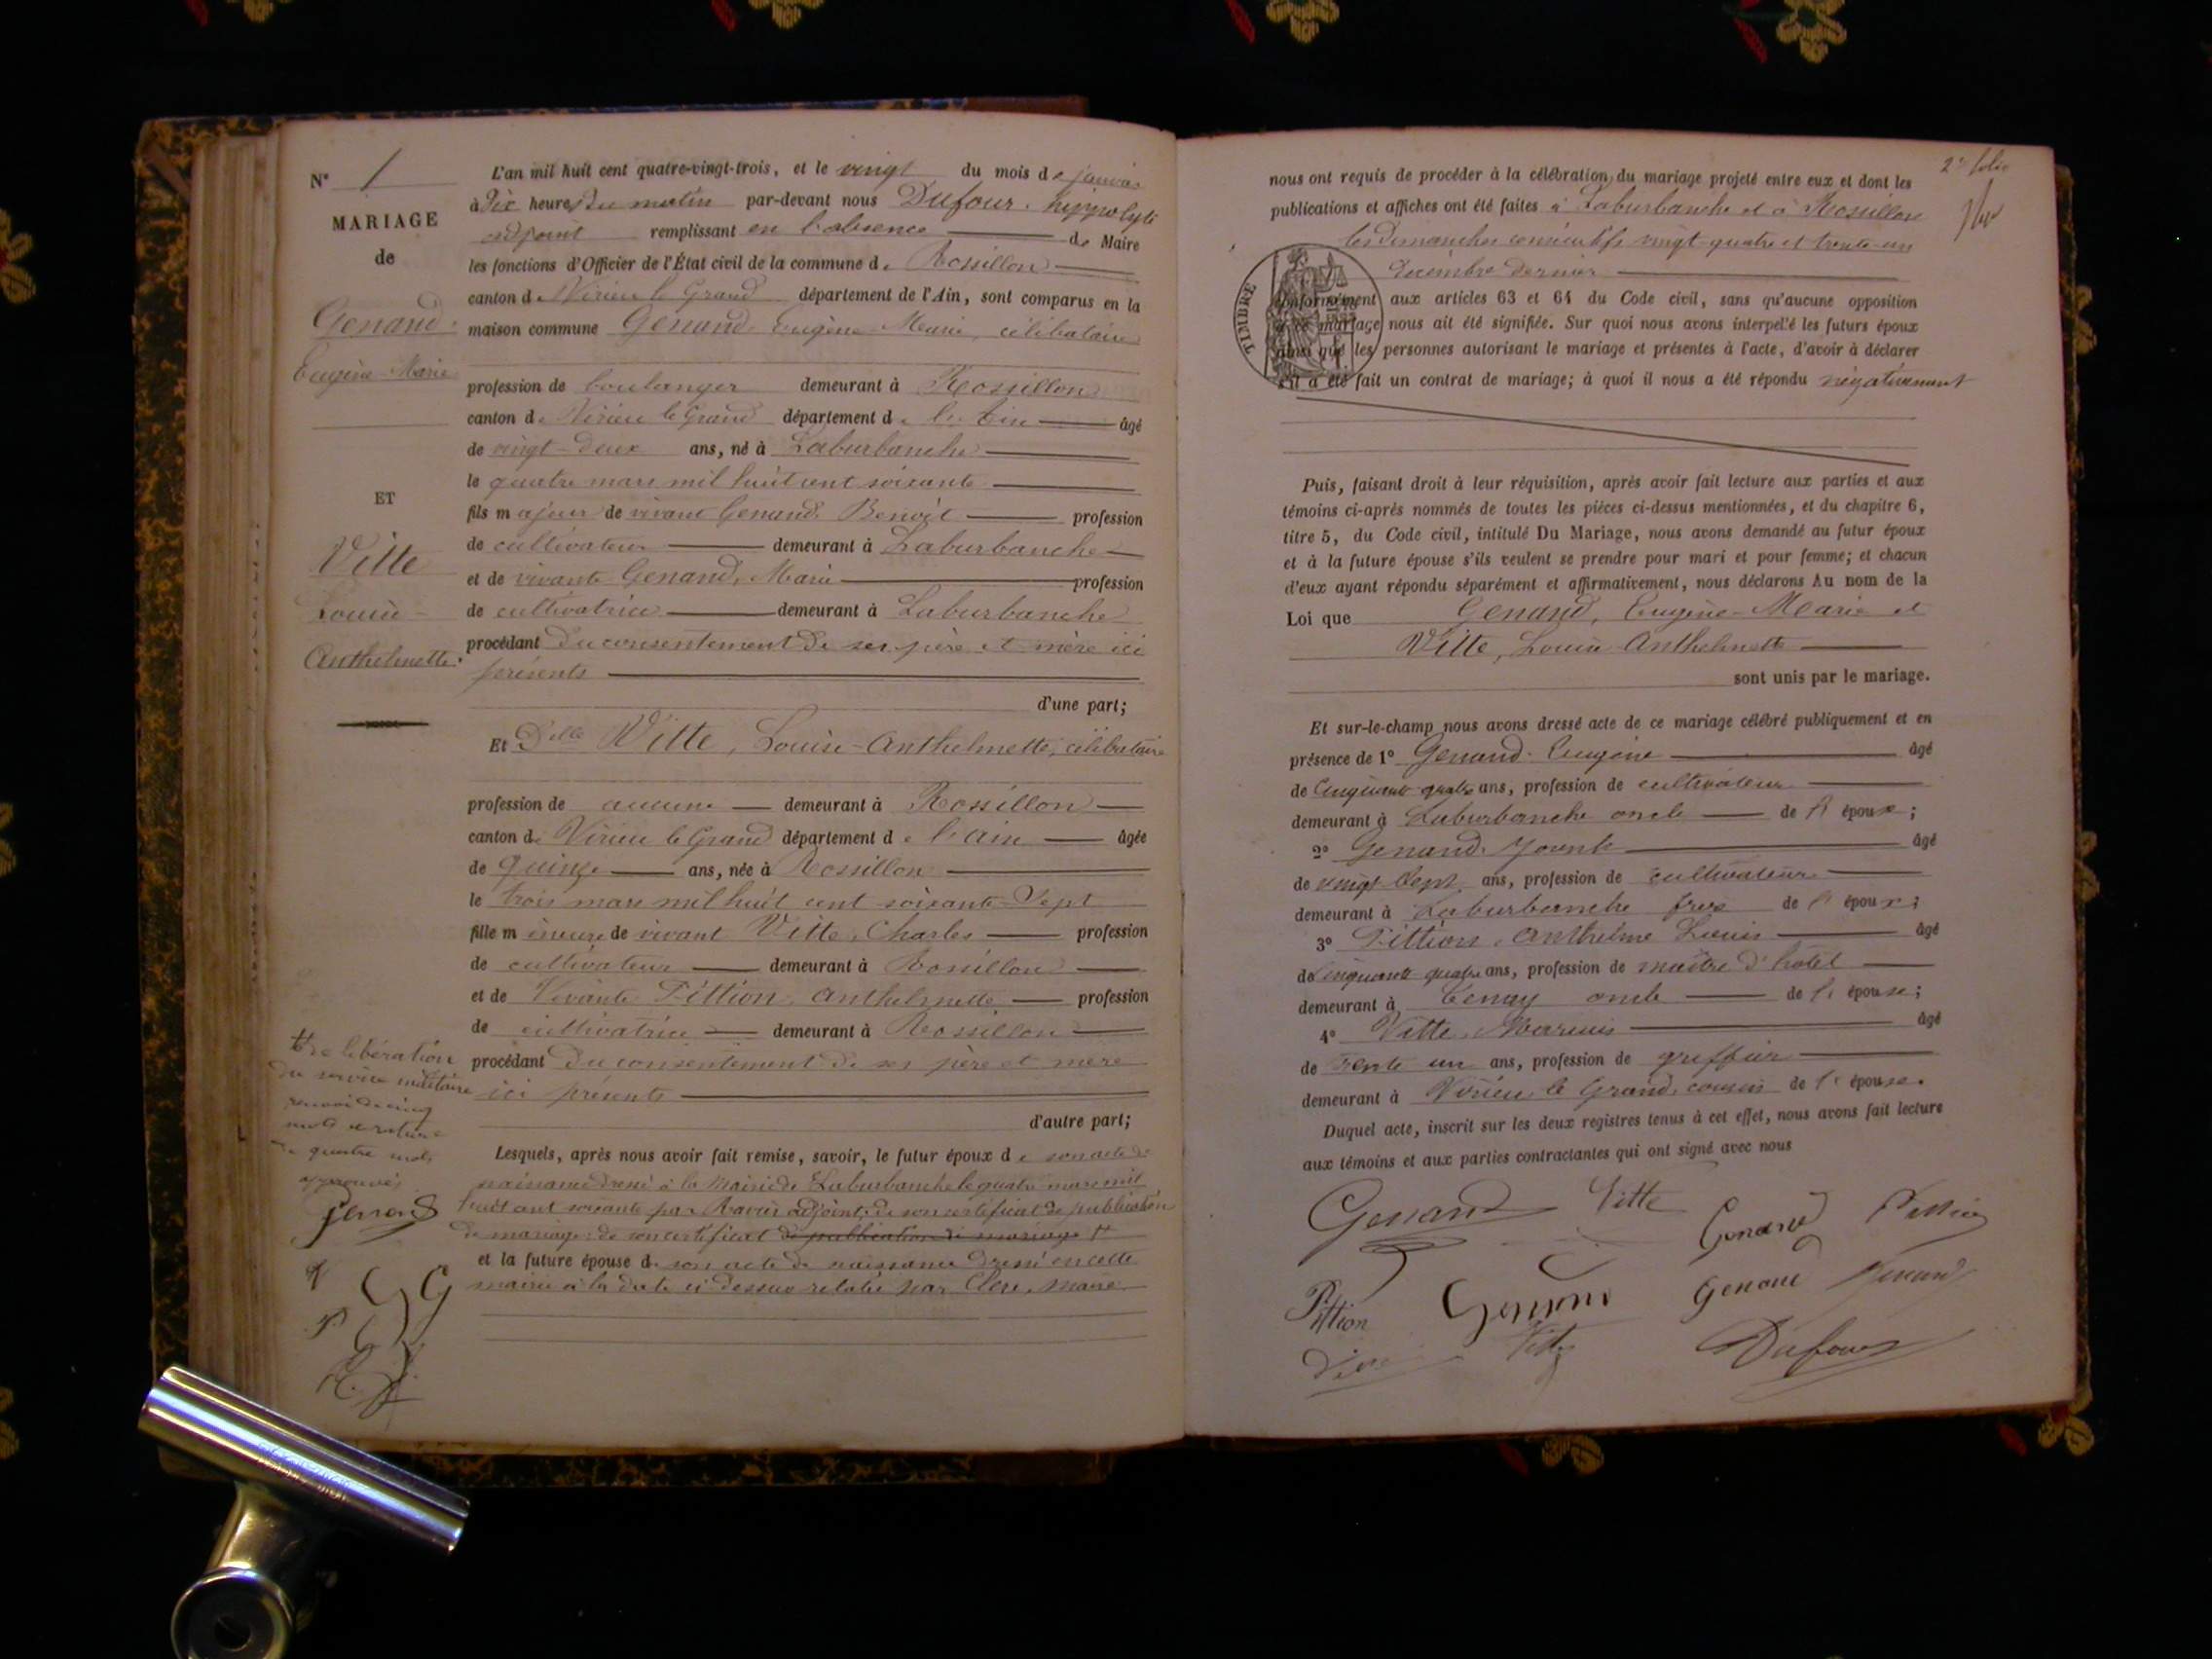 N° 1
MARIAGE
de
Genand
Eugène Marie
ET
Vitte
Louise
Anthelmette
L'an mil huit cent quatre-vingt-trois, et le vingt du mois de janvier
à Dix heures du matin par-devant nous Dufour, hyppolyte
adjoint remplissant en l'absence de Maire
les fonctions d'Officier de l'État civil de la commune de Rossillon
canton de Virieu le Grand département de l'Ain, sont comparus en la
maison commune Genand Eugène Marie, célibataire
profession de boulanger demeurant à Rossillon
canton de Virieu le Grand département de l'Ain âgé
de vingt-deux ans, né à Laburbanche
le quatre mars mil huit cent soixante
fils majeur de vivant Genand Benoît profession
de cultivateur demeurant à Laburbanche
et de vivante Genand, Marie profession
de cultivatrice demeurant à Laburbanche
procédant du consentement de ses père et mère ici
présents
d'une part;
Et Delle Vitte, Louise-Anthelmette, célibataire
profession de aucune demeurant à Rossillon
canton de Virieu le Grand département de l'Ain âgée
de quinze ans, née à Rossillon
le trois mars mil huit cent soixante-sept
fille mineure de vivant Vitte, Charles profession
de cultivateur demeurant à Rossillon
et de vivante Pittion, Anthelmette profession
de cultivatrice demeurant à Rossillon
procédant du consentement de ses père et mère
ici présents
d'autre part;
Lesquels, après nous avoir fait remise, savoir, le futur époux de son acte de
naissance dressé à la Mairie de Laburbanche le quatre mars mil
huit cent soixante par Ravier adjoint; de son certificat de publication
de mariage; de son certificat de publication de mariage
et la future épouse de son acte de naissance dressé en cette
mairie à la date ci-dessus relatée par Clerc, maire
de libération
du service militaire
renvoi de cinq
mots et rature
de quatre mots
approuvés
Genand
G G
2e folio
nous ont requis de procéder à la célébration du mariage projeté entre eux et dont les
publications et affiches ont été faites à Laburbanche et à Rossillon
les dimanches consécutifs vingt-quatre et trente-un
Décembre dernier
TIMBRE
conformément aux articles 63 et 64 du Code civil, sans qu'aucune opposition
à ce mariage nous ait été signifiée. Sur quoi nous avons interpelé les futurs époux
ainsi que les personnes autorisant le mariage et présentes à l'acte, d'avoir à déclarer
s'il a été fait un contrat de mariage; à quoi il nous a été répondu négativement
Puis, faisant droit à leur réquisition, après avoir fait lecture aux parties et aux
témoins ci-après nommés de toutes les pièces ci-dessus mentionnées, et du chapitre 6,
titre 5, du Code civil, intitulé Du Mariage, nous avons demandé au futur époux
et à la future épouse s'ils veulent se prendre pour mari et pour femme; et chacun
d'eux ayant répondu séparément et affirmativement, nous déclarons Au nom de la
Loi que Genand, Eugène-Marie et
Vitte, Louise Anthelmette
sont unis par le mariage.
Et sur-le-champ nous avons dressé acte de ce mariage célébré publiquement et en
présence de 1° Genand Eugène âgé
de Cinquante quatre ans, profession de cultivateur
demeurant à Laburbanche oncle de l'époux;
2° Genand âgé
de vingt sept ans, profession de cultivateur
demeurant à Laburbanche frère de l'époux;
3° Pittion, Anthelme Louis âgé
de cinquante quatre ans, profession de maître d'hôtel
demeurant à Tenay oncle de l'épouse;
4° Vitte, Marius âgé
de Trente un ans, profession de greffier
demeurant à Virieu le Grand, cousin de l'épouse.
Duquel acte, inscrit sur les deux registres tenus à cet effet, nous avons fait lecture
aux témoins et aux parties contractantes qui ont signé avec nous
Genand Vitte Genand Pittion
Pittion Genand Genand Genand
Vitte Dufour